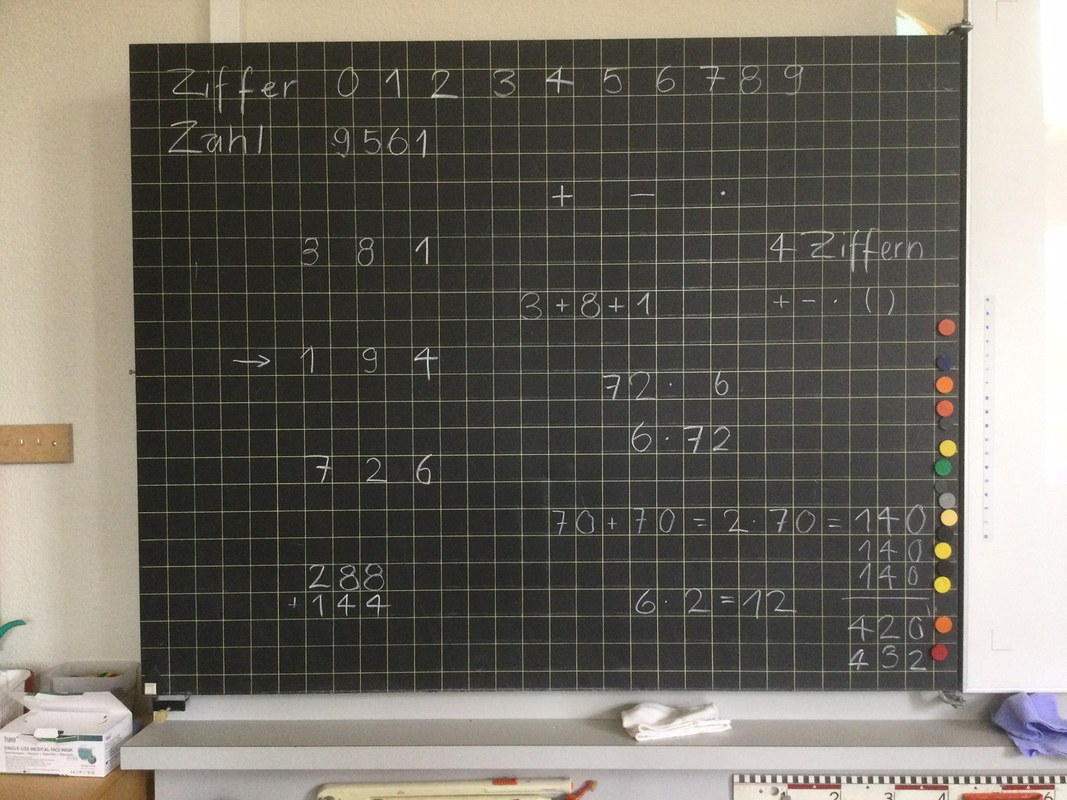 Ziffer 0 1 2 3 4 5 6 7 8 9
Zahl 9561
+ − ·
3 8 1
4 Ziffern
3+8+1
+ − · ()
→ 1 9 4
72 · 6
6 · 72
7 2 6
70 + 70 = 2 · 70 = 140
140
288
140
+144
6 · 2 = 12
420
432
SINGLE-USE MEDICAL FACE MASK
1 2 3 4 6